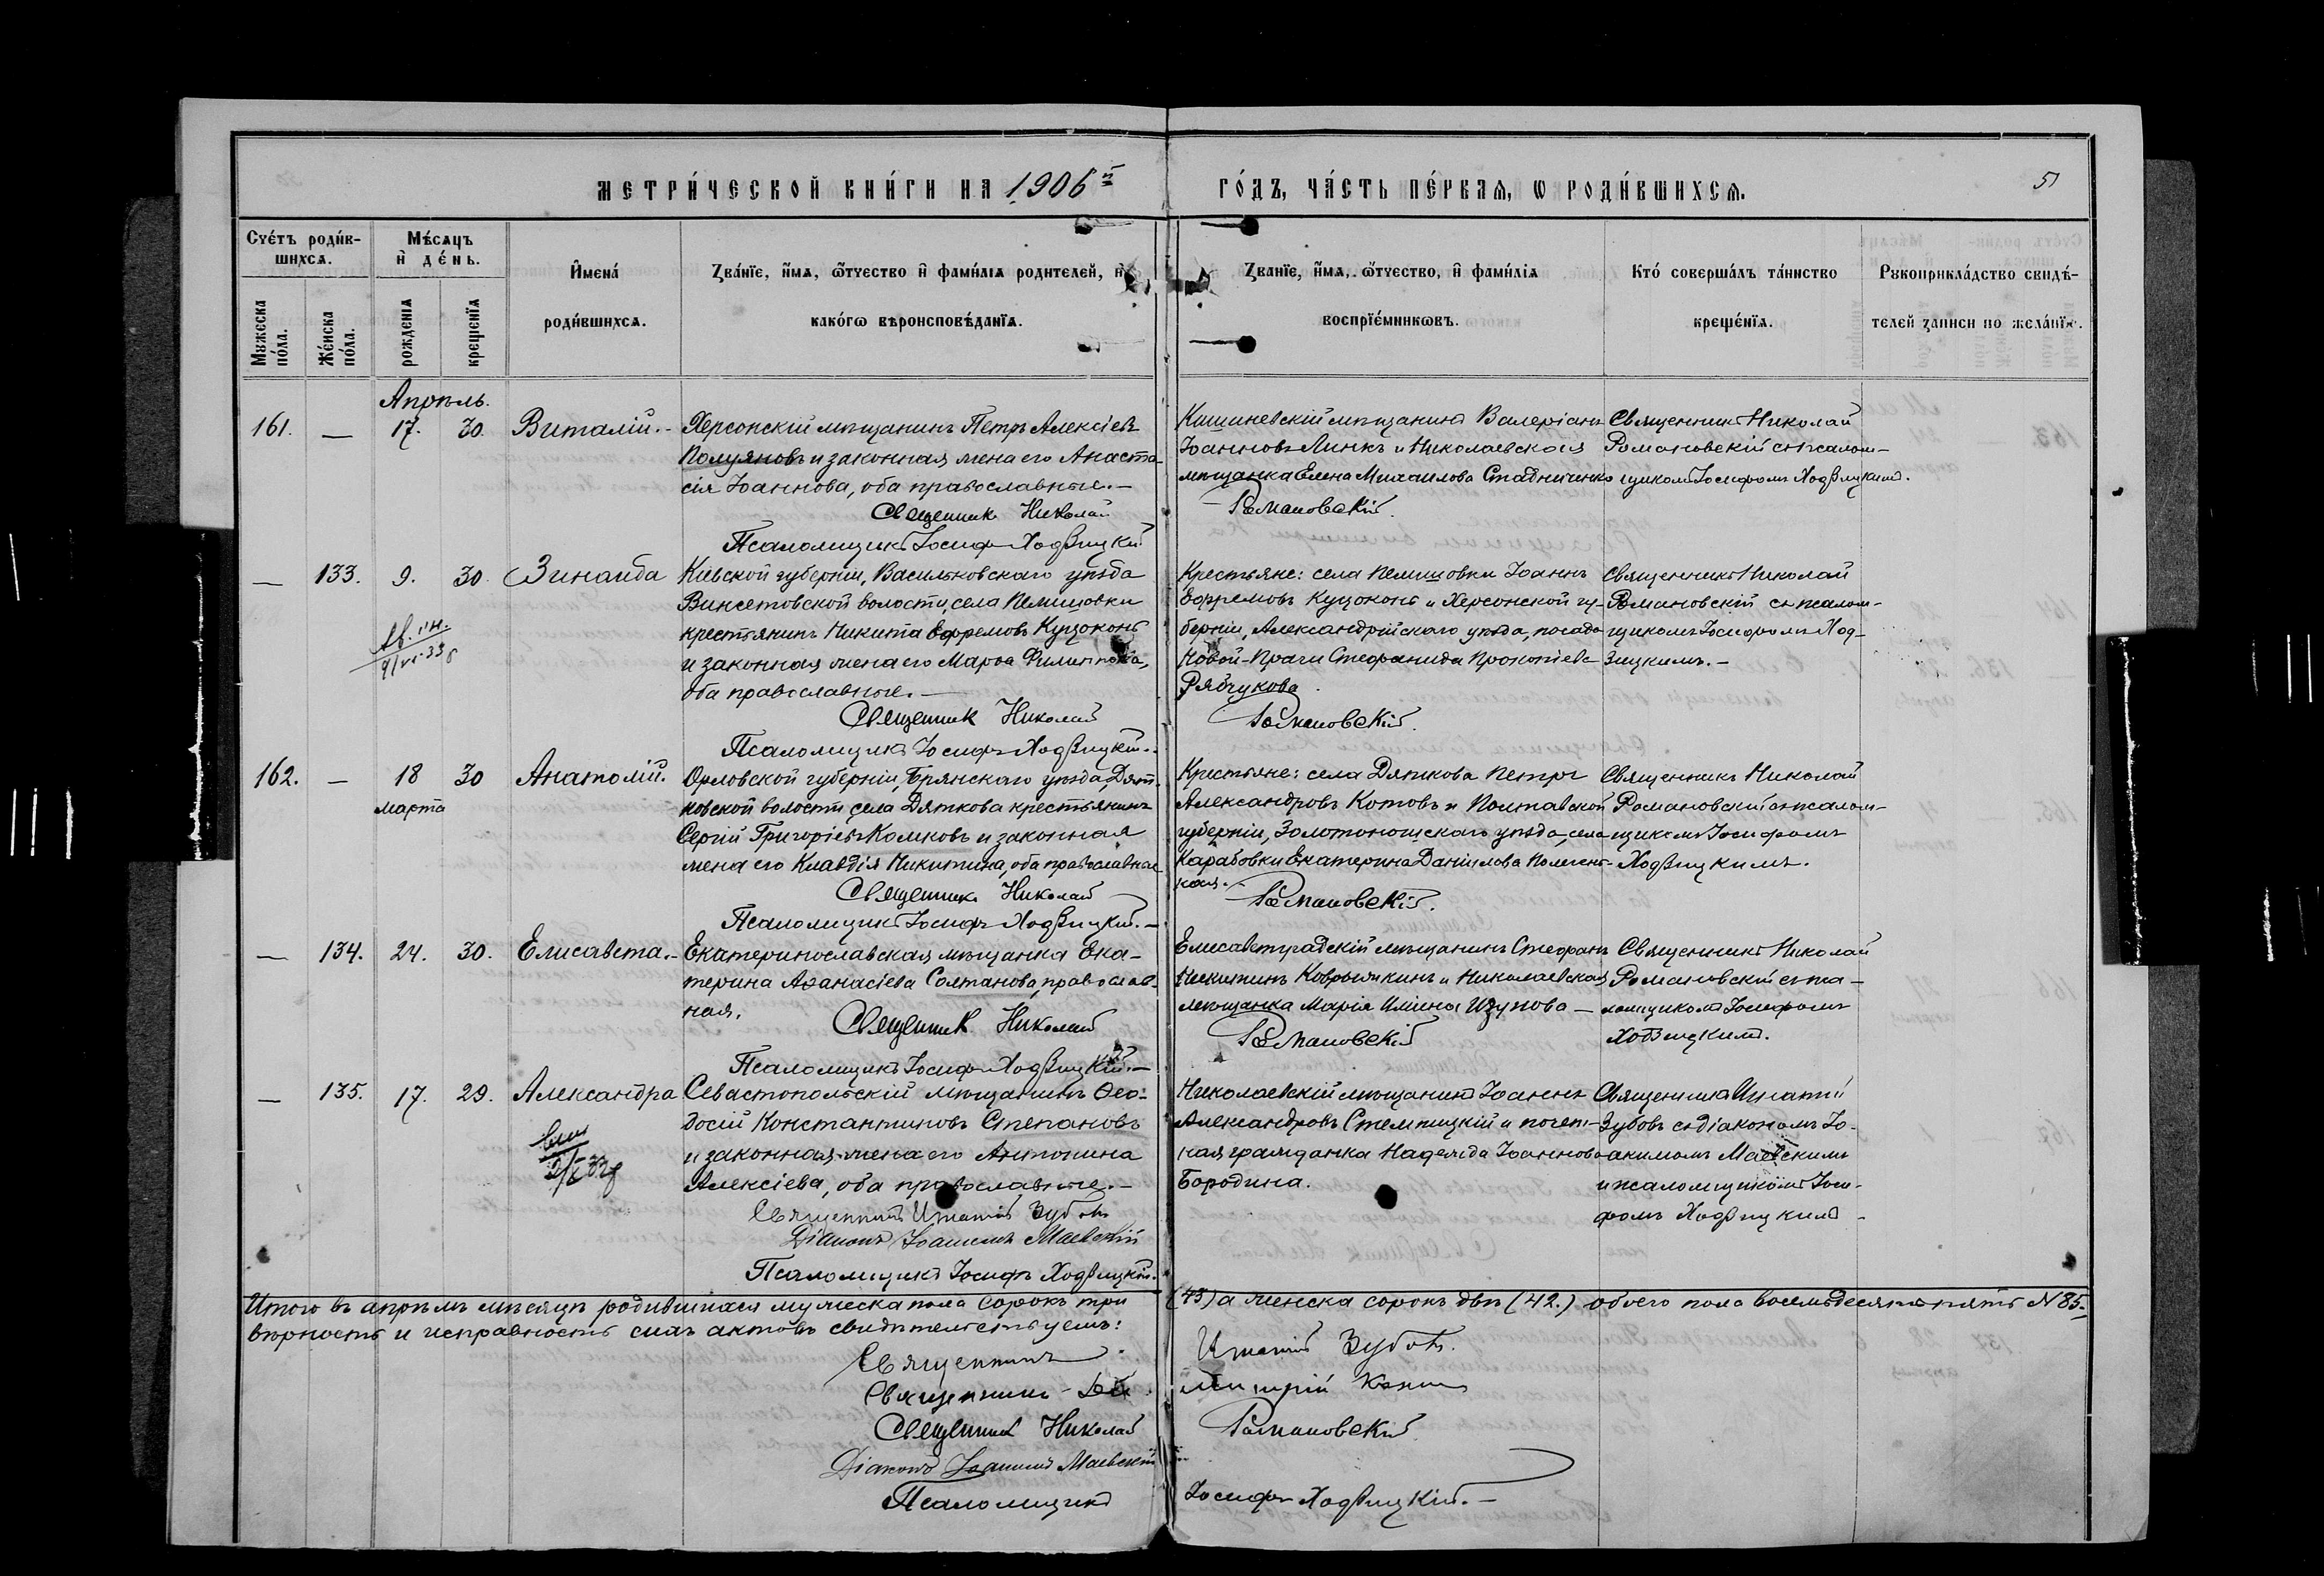 МЕТРИ́ЧЕСКОЙ КНИ́ГИ НА 1906й ГО́ДЪ, ЧА́СТЬ ПЕ́РВАЯ, Ѡ РОДИ́ВШИХСЯ.
51
Сче́тъ роди́в-
шихся.
Мꙋжеска по́ла.
Же́нска по́ла.
Мѣ́сяцъ и де́нь.
рожденїя
крещенїя
И҆мена́ роди́вшихся.
Зва́нїе, и҆́мя, ѻ҆́тчество и҆ фами́лія родителей, и҆ како́гѡ вѣроисповѣ́данїя.
Званїе, и҆́мя, ѻ҆́тчество, и҆ фами́лїя воспрїе́мниковъ.
Кто́ соверша́лъ та́инство креще́нїя.
Рꙋкоприкла́дство свидѣ́-
телей записи по жела́нїю.
Апрѣль.
161. — 17. 30. Виталій.-
Херсонскій мѣщанинъ Петръ Алексіевъ
Полуяновъ и законная жена его Анаста-
сія Іоаннова, оба православные.-
Священникъ Николай
Псаломщикъ Іосифъ Ходзицкій
Кишиневскій мѣщанинъ Валеріанъ
Іоанновъ Линкъ и Николаевская
мѣщанка Елена Михаилова Стадниченко
Романовскій.
Священникъ Николай
Романовскій съ псалом-
щикомъ Іосифомъ Ходзицкимъ.
— 133. 9. 30. Зинаида
Кіевской губерніи, Васильковскаго уѣзда
Винсетовской волости, села Пемишовки
крестьянинъ Никита Ефремовъ Куцоконь
и законная жена его Марѳа Филиппова,
оба православные.—
Священникъ Николай
Псаломщикъ Іосифъ Ходзицкій.
Крестьяне: села Пемишовки Іоаннъ
Ефремовъ Куцоконь и Херсонской гу-
берніи, Александрійскаго уѣзда, посада
Новой-Праги Стефанида Прокопіева
Рябчукова.
Романовскій.
Священникъ Николай
Романовскій съ псалом-
щикомъ Іосифомъ Ход-
зицкимъ.-
162. — 18 30 Анатолій.
марта
Орловской губерніи, Брянскаго уѣзда, Дят-
ковской волости, села Дяткова крестьянинъ
Сергій Григорьевъ Комковъ и законная
жена его Клавдія Никитина, оба православные
Священникъ Николай
Псаломщикъ Іосифъ Ходзицкій.-
Крестьяне: села Дяткова Петръ
Александровъ Котовъ и Полтавской
губерніи, Золотоношскаго уѣзда, села
Карабовки Екатерина Даніилова
Романовскій.
Священникъ Николай
Романовскій съ псалом-
щикомъ Іосифомъ
Ходзицкимъ.
— 134. 24. 30. Елисавета.-
Екатеринославская мѣщанка Ека-
терина Аѳанасіева Солтанова, православ-
ная.
Священникъ Николай
Псаломщикъ Іосифъ Ходзицкій.-
Елисаветградскій мѣщанинъ Стефанъ
Никитинъ и Николаевская
мѣщанка Марія Ильина Изупова —
Романовскій
Священникъ Николай
Романовскій съ пса-
ломщикомъ Іосифомъ
Ходзицкимъ.
— 135. 17. 29. Александра
Севастопольскій мѣщанинъ Ѳео-
досій Константиновъ Степановъ
и законная жена его Антонина
Алексіева, оба православные.-
Священникъ Игнатій Зубовъ
Діаконъ Іоакимъ Маевскій
Псаломщикъ Іосифъ Ходзицкій.
Николаевскій мѣщанинъ Іоаннъ
Александровъ Стемпицкій и почет-
ная гражданка Надежда Іоаннова
Бородина.
Священникъ Игнатій
Зубовъ съ діакономъ Іо-
акимомъ Маевскимъ
и псаломщикомъ Іоси-
фомъ Ходзицкимъ
Итого въ апрѣлѣ мѣсяцѣ родившихся мужеска пола сорокъ три (43) а женска сорокъ двѣ (42.) обоего пола восемьдесятъ пять №85.-
вѣрность и исправность сихъ актовъ свидѣтельствуемъ:
Священникъ Игнатій Зубовъ.
Священникъ Димитрій
Священникъ Николай Романовскій
Діаконъ Іоакимъ Маевскій
Псаломщикъ Іосифъ Ходзицкій.-